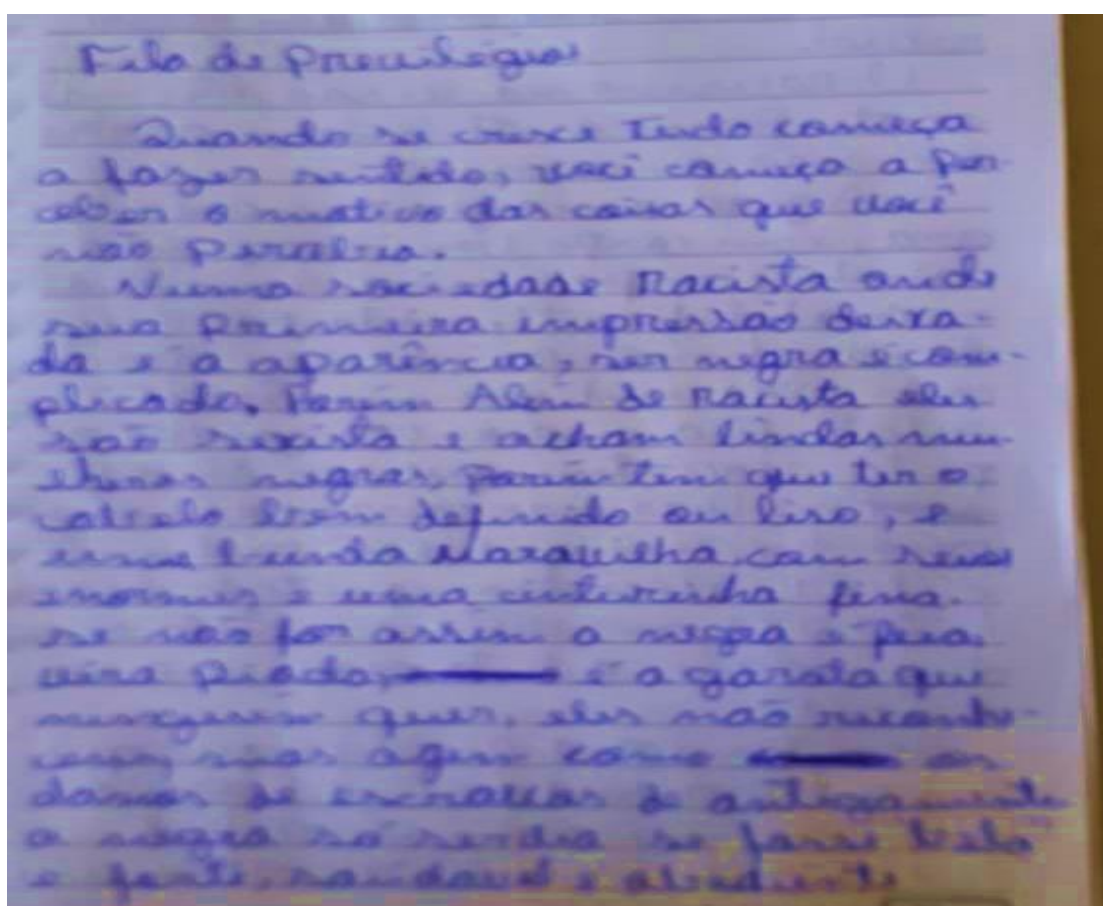 Fila de Previlégios
Quando se cresce Tudo começa
a fazer sentido, você começa a Per-
ceber o motivo das coisas que você
não Percebia.
Numa sociedade Racista onde
sua Primeira impressão deixa-
da é a aparência, ser negra é com-
plicado. Porém Além de Racista eles
são sexista e acham lindas mu-
lheres negras, Porém tem que ter o
cabelo bem definido ou liso, e
bunda Maravilha, com seios
enormes e uma cinturinha fina.
se não for assim a negra é feia
vira Piada, é a garota que
ninguém quer, eles não reconhe-
cem, mas agem como os
donos de escravos de antigamente
a negra só servia se fosse bela
e forte, saudável e obediente